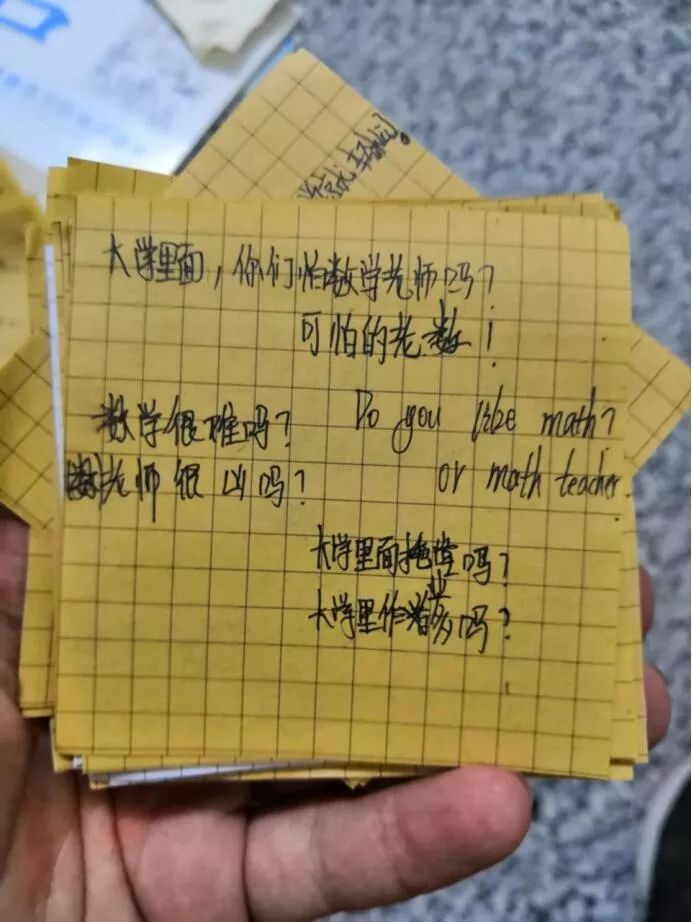 大学里面，你们怕数学老师吗？
可怕的老数！
数学很难吗？
Do you like math?
老师很凶吗？
or math teacher.
大学里面拖堂吗？
大学里作业多吗？